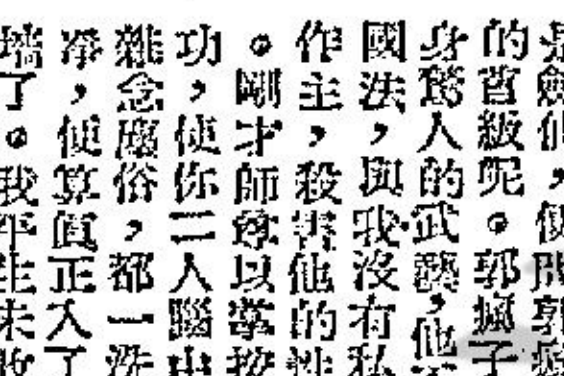 的首級呢。郭瘋子
身驚人的武藝，他
國法，與我沒有私
作主，殺害他的性
。剛才師尊以掌按
功，使你二人腦中
雜念塵俗，都一洗
，便算值正入了
了。我平生未收